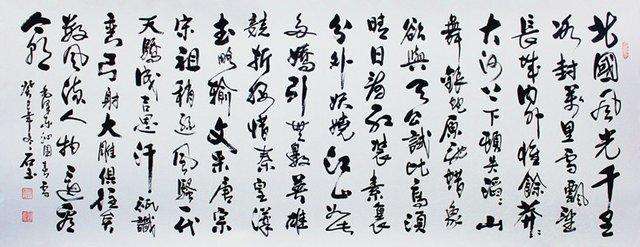 北國風光千里
冰封萬里雪飄望
長城內外惟餘莽〻
大河上下頓失滔〻山
舞銀蛇原馳蠟象
欲與天公試比高須
晴日看紅裝素裹
分外妖嬈江山如此
多嬌引無數英雄
競折腰惜秦皇漢
武略輸文采唐宗
宋祖稍遜風騷一代
天驕成吉思汗祗識
彎弓射大雕俱往矣
數風流人物還看
今朝
毛澤東沁園春雪
癸巳年 石玉